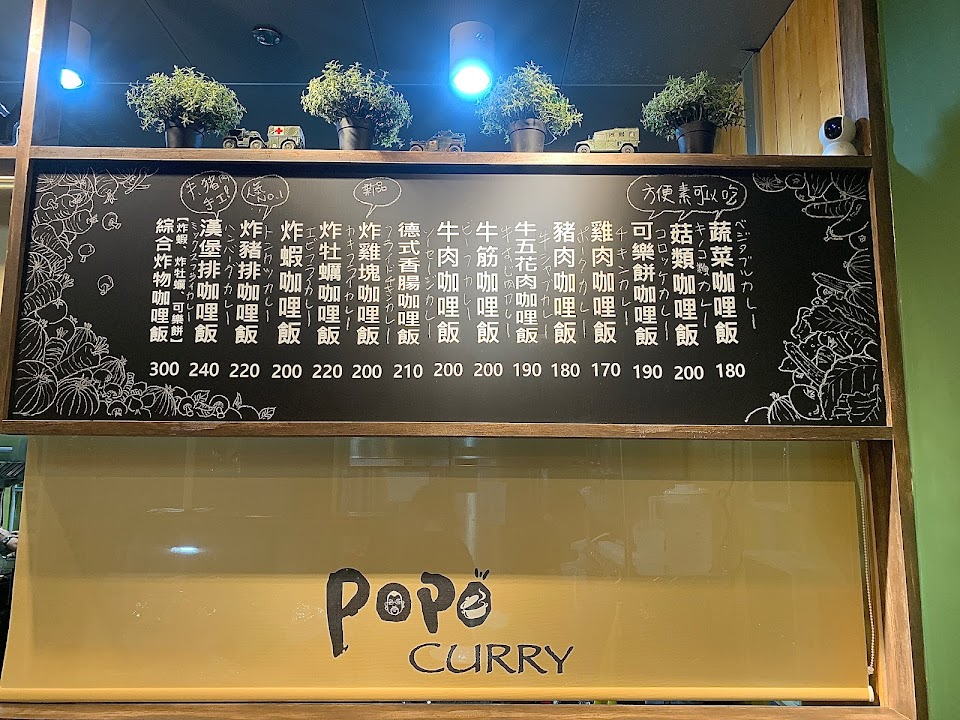 方便素可以吃
蔬菜咖哩飯
ベジタブルカレー
180
菇類咖哩飯
キノコ類カレー
200
可樂餅咖哩飯
コロッケカレー
190
雞肉咖哩飯
チキンカレー
170
豬肉咖哩飯
ポークカレー
180
牛五花肉咖哩飯
190
牛筋咖哩飯
200
牛肉咖哩飯
ビーフカレー
200
德式香腸咖哩飯
ソーセージカレー
210
新品
炸雞塊咖哩飯
フライドチキンカレー
200
炸牡蠣咖哩飯
カキフライカレー
220
炸蝦咖哩飯
エビフライカレー
200
人氣No.1
炸豬排咖哩飯
トンカツカレー
220
牛.豬
手工
漢堡排咖哩飯
ハンバーグカレー
240
綜合炸物咖哩飯
ミックスフライカレー
【炸蝦、炸牡蠣、可樂餅】
300
POPO
CURRY